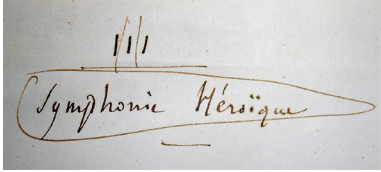 IIII
Symphonie Héroïque